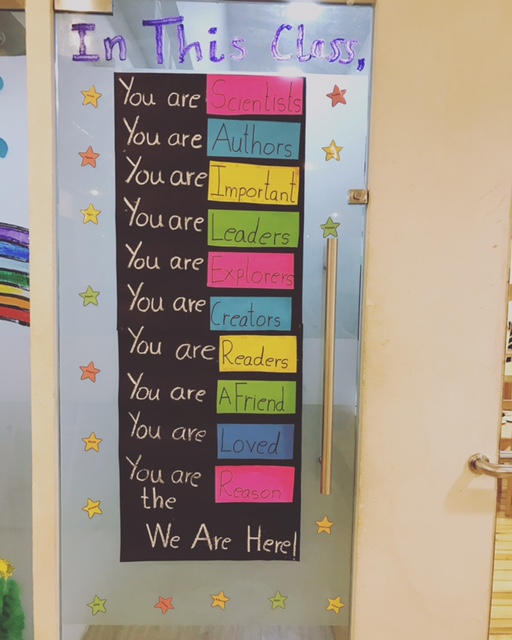 In This Class,
You are Scientists
You are Authors
You are Important
You are Leaders
You are Explorers
You are Creators
You are Readers
You are A Friend
You are Loved
You are Reason
the
We Are Here!